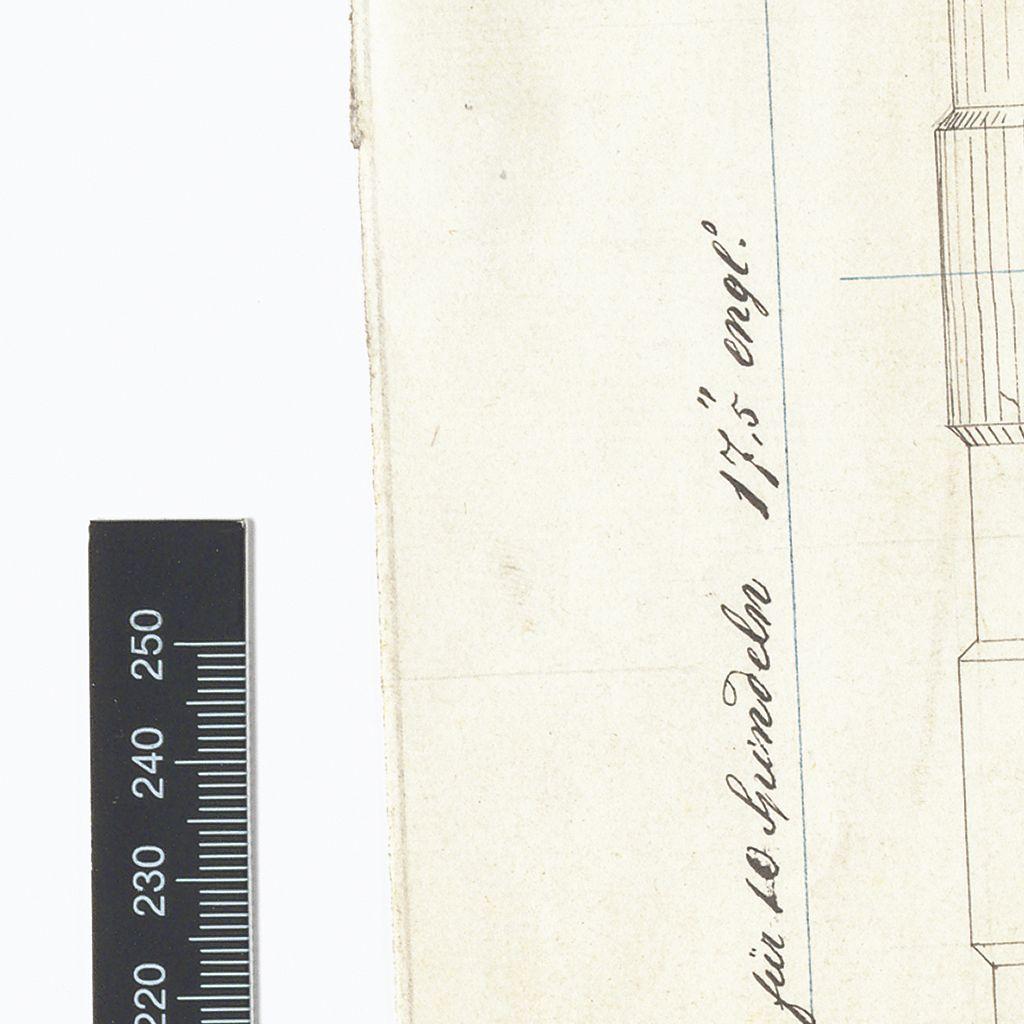 250
240
230
220
für 10 Spindeln 17,5" engl.